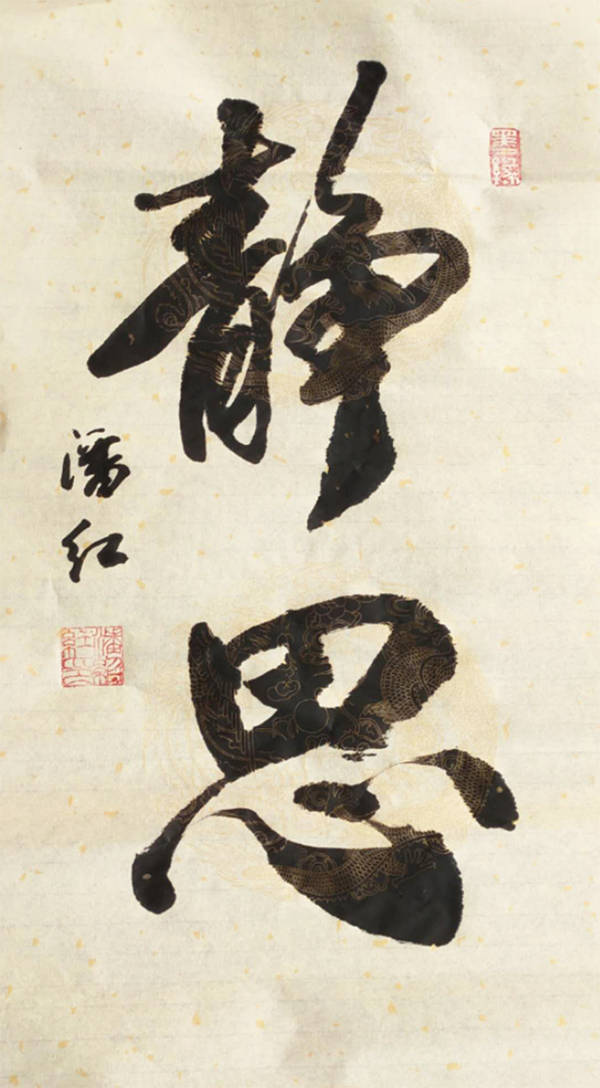 静思
潘红